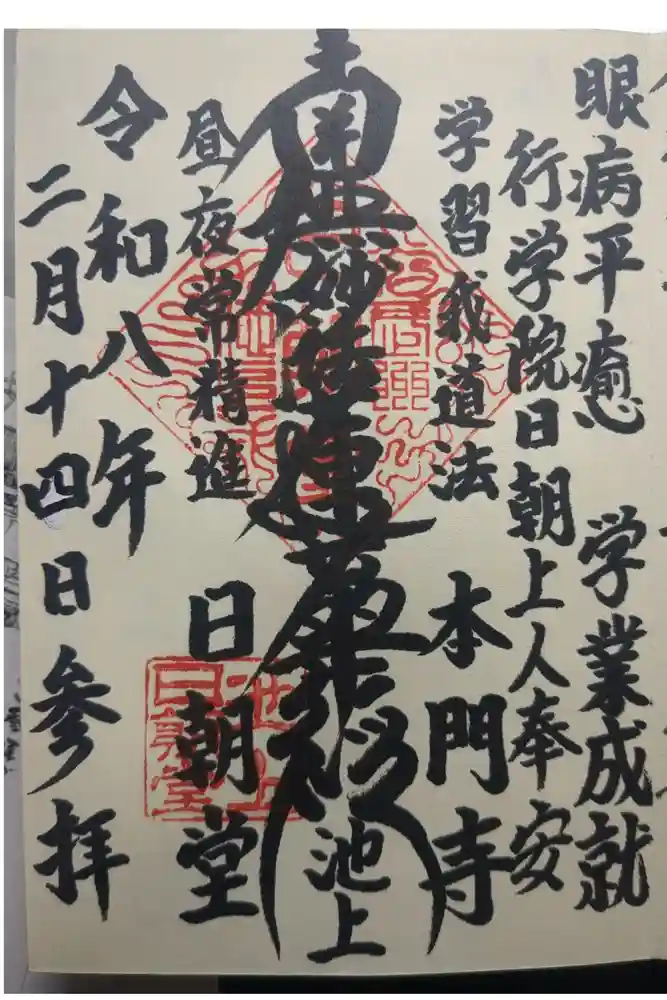 眼病平癒 学業成就
行学院日朝上人奉安
学習我道法 本門寺
南無妙法蓮華経 池上
昼夜常精進 日朝堂
令和八年
二月十四日参拝
池上
日朝堂